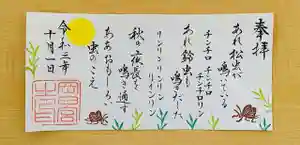 奉拝
あれ松虫が
鳴いている
チンチロ
チンチロ
チンチロリン
あれ鈴虫も
鳴きだした
リンリンリンリン
リインリン
秋の夜長を
鳴き通す
ああおもしろい
虫のこえ
令和三年
十月一日